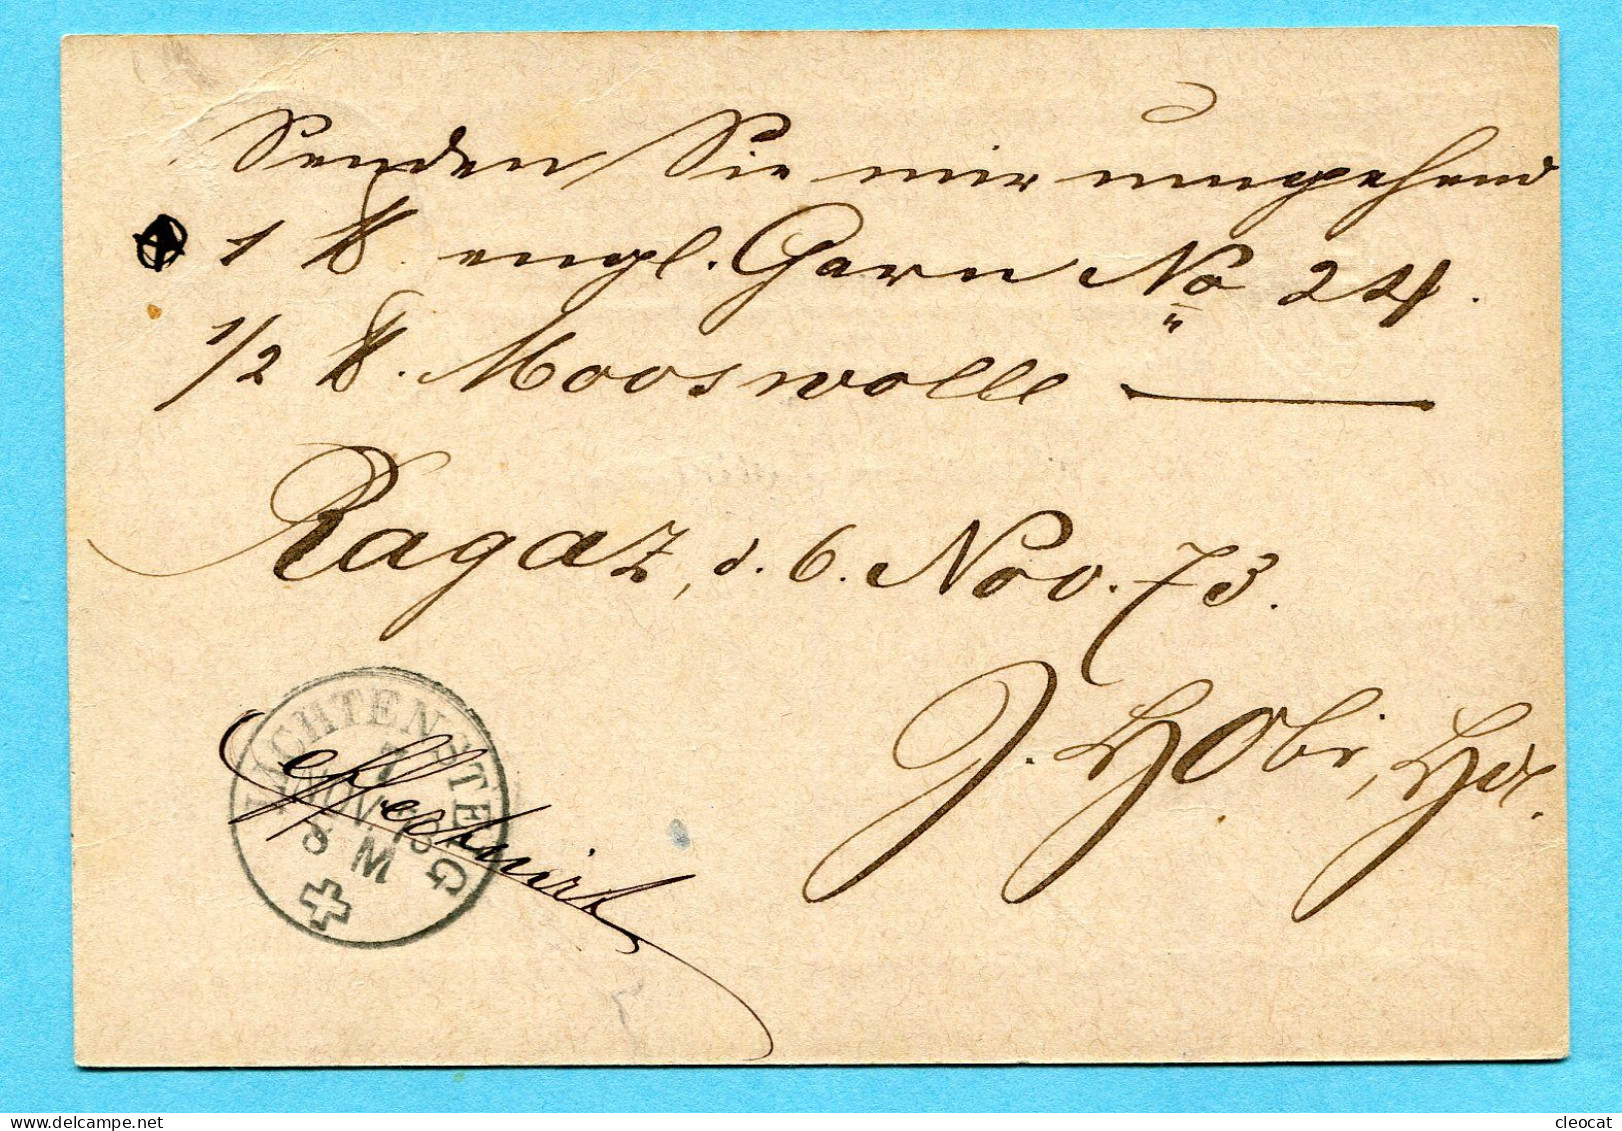 Senden Sie mir umgehend
1 ℔ engl. Garn No 24.
1/2 ℔. Mooswolle
Ragaz, d. 6. Nov. 73.
J. HObi, Hdl.
LICHTENSTEIG
7
NOV. 73
8 M
effectuirt
cleocat